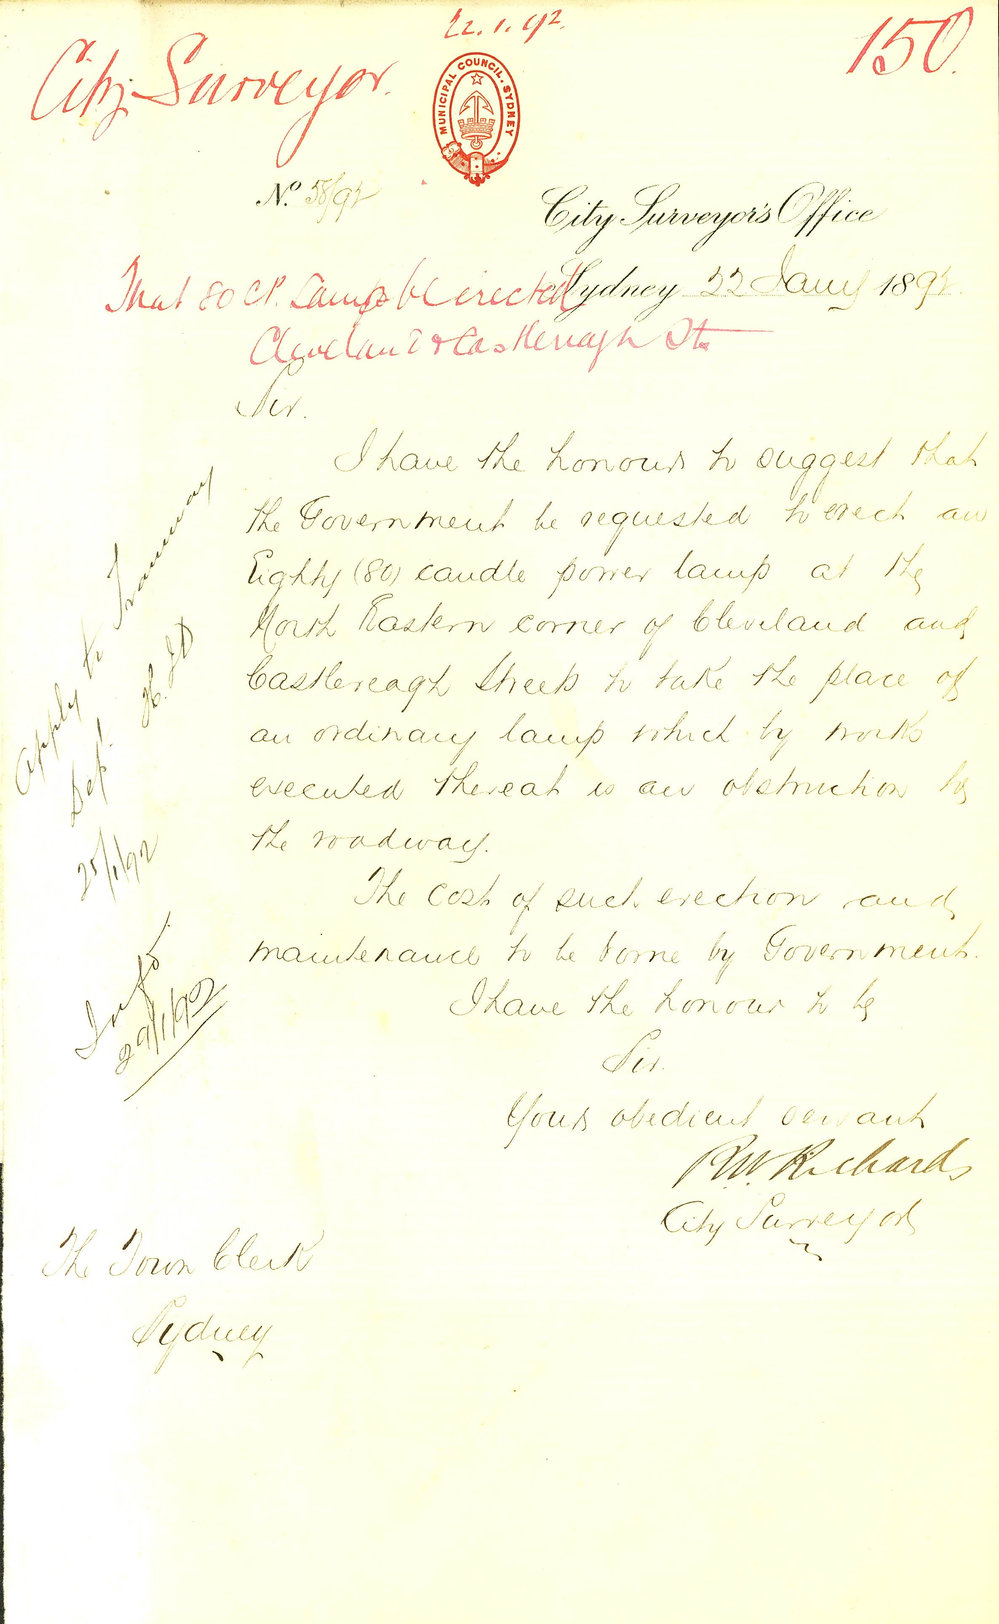 22.1.92.
City Surveyor.
150.
MUNICIPAL COUNCIL. SYDNEY
No. 58/92
City Surveyor's Office
Sydney 22 Jany 1892
That 80 CP. Lamp be erected
Cleveland & Castlereagh Sts
Sir.
I have the honour to suggest that
the Government be requested to erect an
Eighty (80) candle power lamp at the
North Eastern corner of Cleveland and
Castlereagh Streets to take the place of
an ordinary lamp which by works
executed thereat is an obstruction to
the roadway.
The cost of such erection and
maintenance to be borne by Government.
I have the honour to be
Sir.
Yours obedient servant
R.W. Richards
City Surveyor
The Town Clerk
Sydney
Apply to Tramway
Dept.
25/1/92
29/1/92